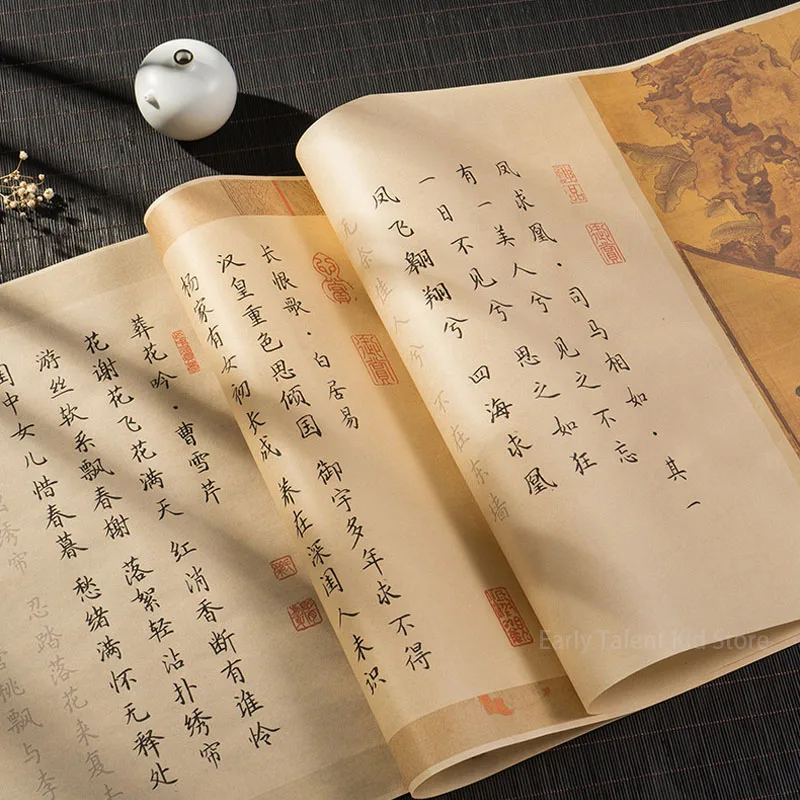 凤求凰·司马相如·其一
有一美人兮 见之不忘
一日不见兮 思之如狂
凤飞翱翔兮 四海求凰
无奈佳人兮 不在东墙
神品
御赏
长恨歌·白居易
汉皇重色思倾国 御宇多年求不得
杨家有女初长成 养在深闺人未识
御赏
葬花吟·曹雪芹
花谢花飞花满天 红消香断有谁怜
游丝软系飘春榭 落絮轻沾扑绣帘
闺中女儿惜春暮 愁绪满怀无释处
绣帘 忍踏落花来复
桃飘与李
Early Talent Kid Store